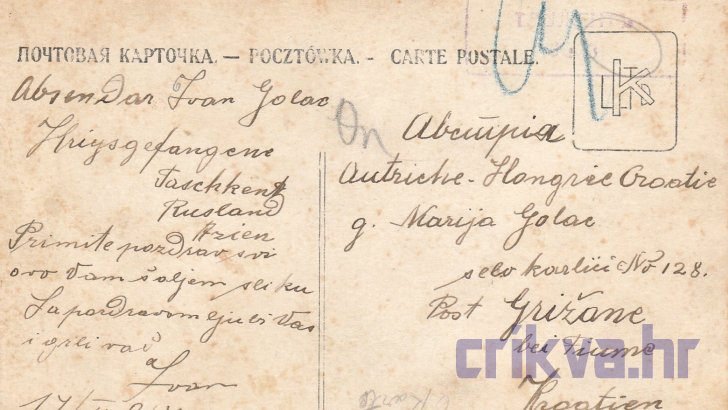 ПОЧТОВАЯ КАРТОЧКА. — POCZTÓWKA. - CARTE POSTALE.
Absendar Ivan Golac
Kriysgefangene
Taschkent
Rusland
Azien
Primite pozdrav svi
ovo vam šaljem sliku
Sa pozdravom ljubi vas
i grli vaš
Ivan
On
Австрия
Autriche-Hongrie Croatie
g. Marija Golac
selo Karlići No 128.
Post Grižane
bei Fiume
Kroatien
Karte
crikva.hr